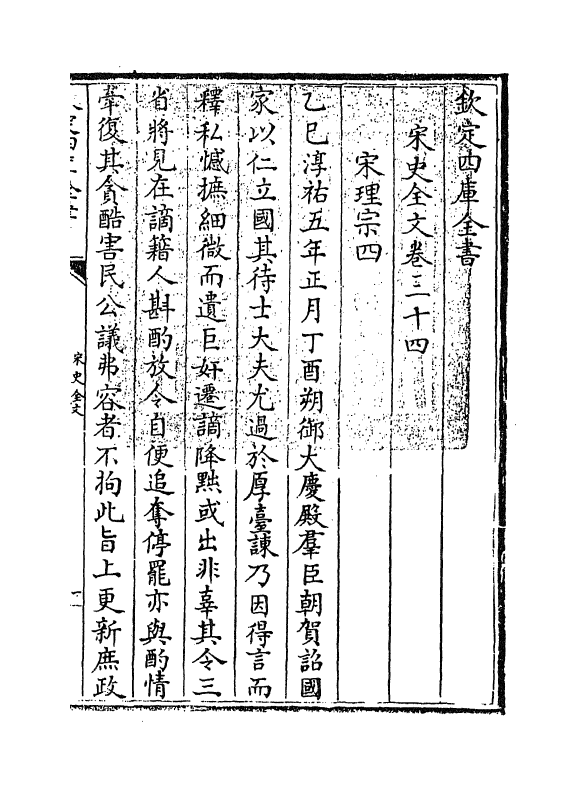 欽定四庫全書
宋史全文卷三十四
宋理宗四
乙巳淳祐五年正月丁酉朔御大慶殿羣臣朝賀詔國
家以仁立國其待士大夫尤過於厚臺諫乃因得言而
釋私憾摭細微而遺巨奸遷謫降黜或出非辜其令三
省將見在謫籍人斟酌放令自便追奪停罷亦與酌情
牽復其貪酷害民公議弗容者不拘此旨上更新庶政
宋史全文